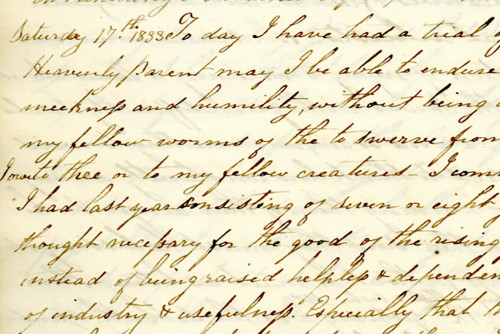 Saturday 17th 1833 To day I have had a trial of
Heavenly Parent may I be able to endure
meekness and humility, without being
my fellow worms of the to swerve from
I owe to thee or to my fellow creatures - I com
I had last year consisting of seven or eight
thought necessary for the good of the rising
instead of being raised helpless & dependen
of industry & usefulness. Especially that